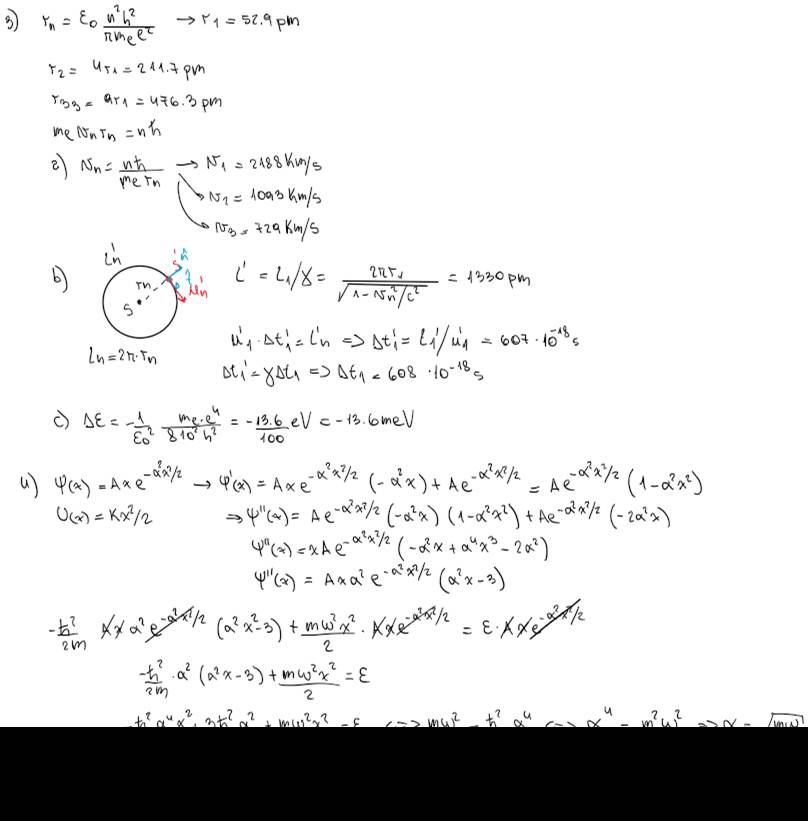 3) r_n = ε_0 n²h²/πm_e e² → r_1 = 52.9 pm
r_2 = 4r_1 = 211.7 pm
r_33 = 9r_1 = 476.3 pm
m_e v_n r_n = nħ
2) v_n = nħ/m_e r_n → v_1 = 2188 Km/s
→ v_2 = 1093 Km/s
→ v_3 = 729 Km/s
b) L'_n r_n S u'_n L' = L_1/γ = 2πr_1/√(1 - v_n²/c²) = 1330 pm
L_n = 2π·r_n
u'_1 · Δt'_1 = L'_n => Δt'_1 = L'_1/u'_1 = 607·10^-18 s
Δt'_1 = γΔt_1 => Δt_1 = 608 · 10^-18 s
c) ΔE = -1/ε_0² m_e·e⁴/8 10² h² = -13.6/100 eV = -13.6 meV
4) ψ(x) = Axe^(-α²x²/2) → ψ'(x) = Axe^(-α²x²/2) (-α²x) + Ae^(-α²x²/2) = Ae^(-α²x²/2) (1-α²x²)
U(x) = Kx²/2 => ψ''(x) = Ae^(-α²x²/2) (-α²x) (1-α²x²) + Ae^(-α²x²/2) (-2α²x)
ψ''(x) = xAe^(-α²x²/2) (-α²x + α⁴x³ - 2α²)
ψ''(x) = Axα² e^(-α²x²/2) (α²x - 3)
-ħ²/2m Ax α² e^(-α²x²/2) (α²x² - 3) + mω²x²/2 · Axe^(-α²x²/2) = E · Axe^(-α²x²/2)
-ħ²/2m · α² (α²x - 3) + mω²x²/2 = E